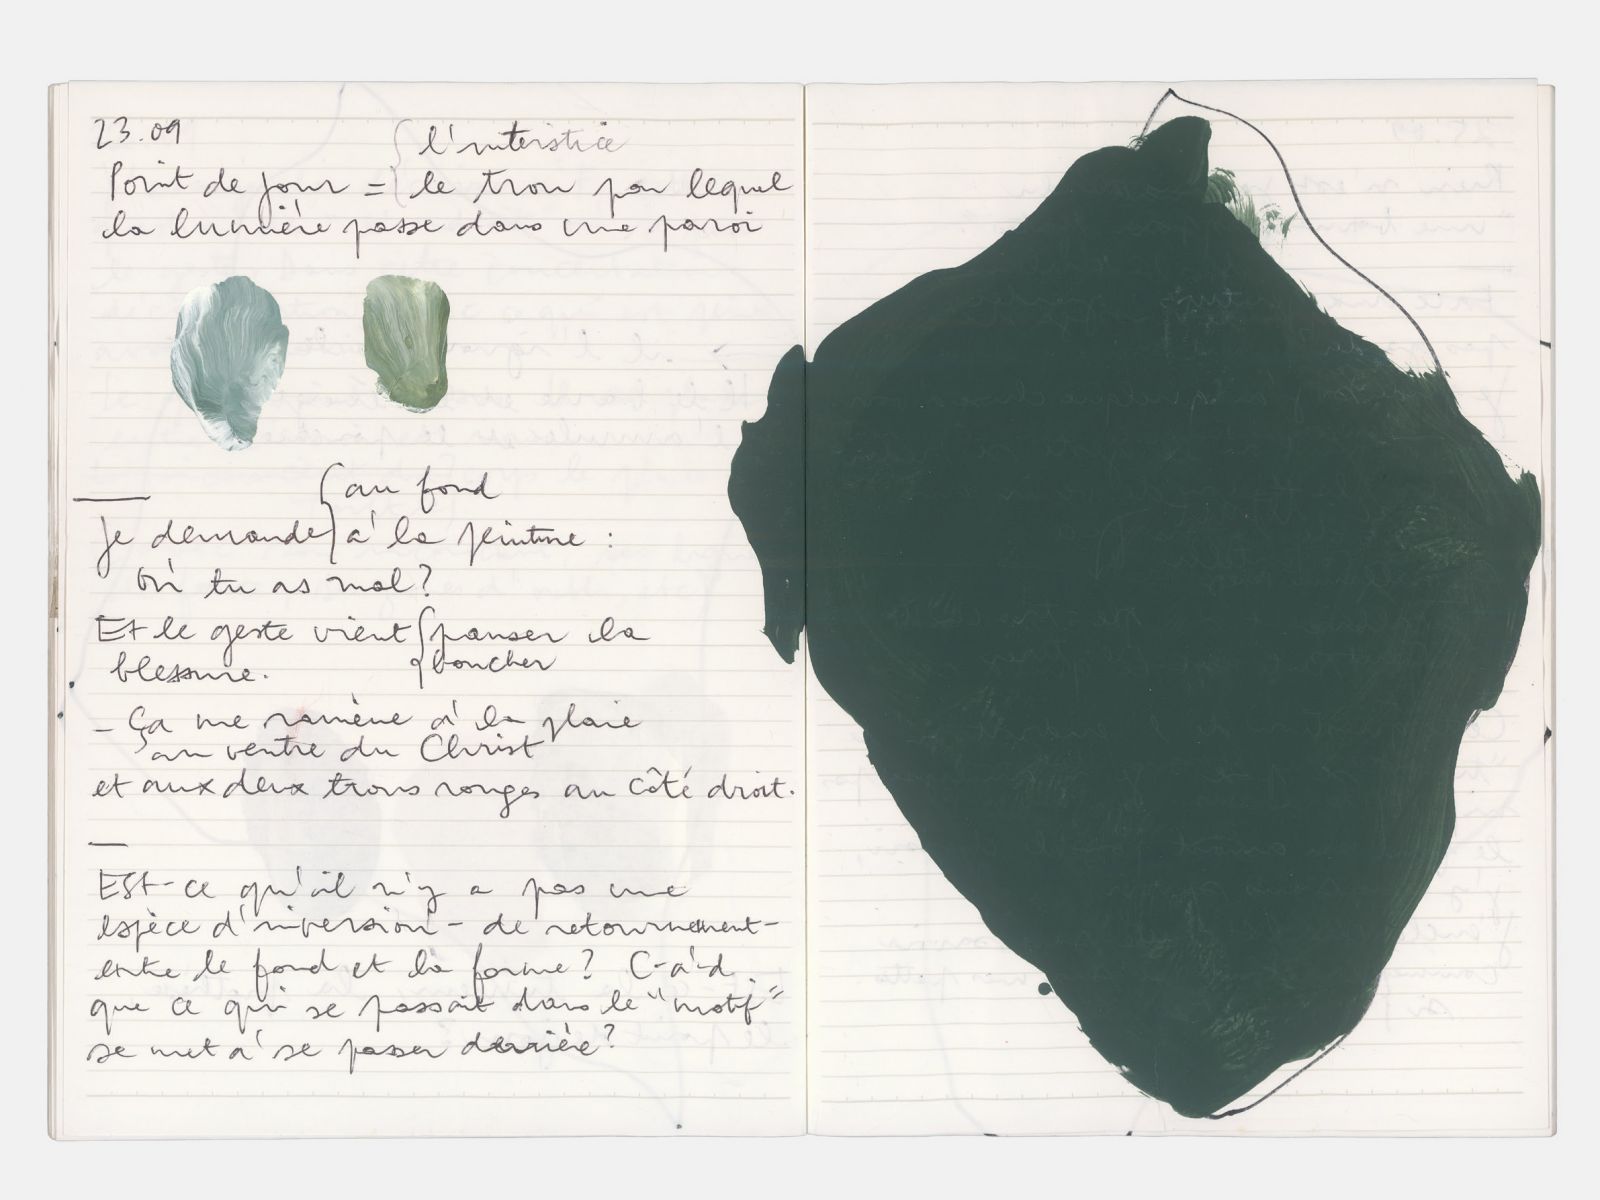 23.09
l'interstice
Point de jour = le trou par lequel
la lumière passe dans une paroi
au fond
Je demande à la peinture :
Où tu as mal ?
Et le geste vient panser la
boucher
blessure.
- Ça me ramène à la plaie
au ventre du Christ
et aux deux trous rouges au côté droit.
Est-ce qu'il n'y a pas une
espèce d'inversion - de retournement -
entre le fond et la forme ? C-à-d
que ce qui se passait dans le "motif"
se met à se passer derrière ?